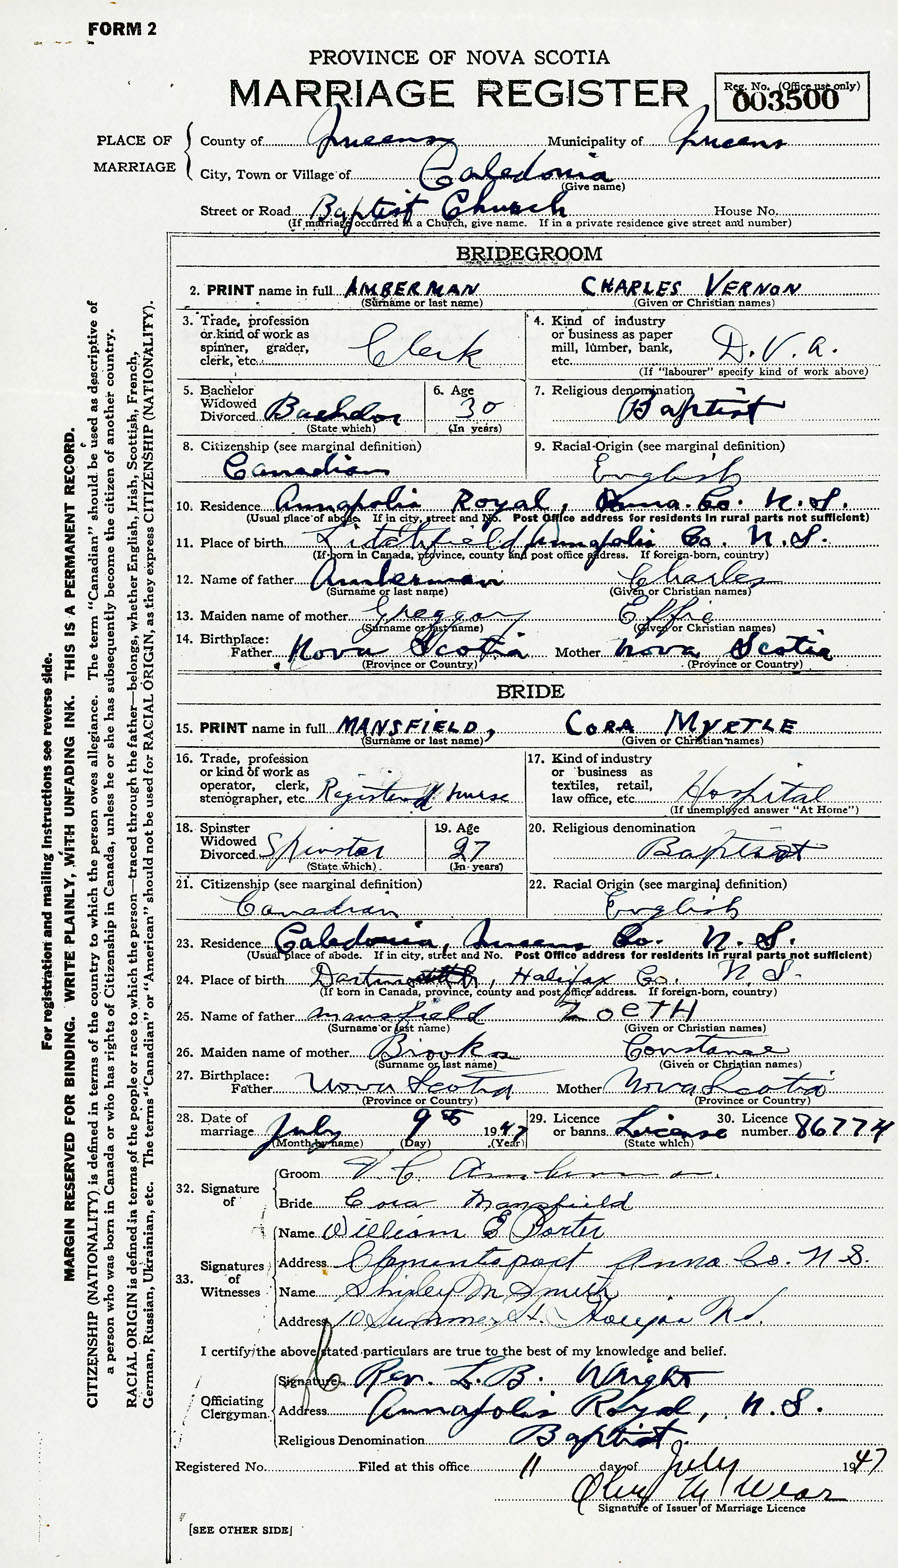 FORM 2
PROVINCE OF NOVA SCOTIA
MARRIAGE REGISTER
Reg. No. (Office use only)
003500
PLACE OF MARRIAGE
County of Queens Municipality of Queens
City, Town or Village of Caledonia
(Give name)
Street or Road Baptist Church House No.
(If marriage occurred in a Church, give name. If in a private residence give street and number)
BRIDEGROOM
2. PRINT name in full AMBERMAN CHARLES VERNON
(Surname or last name) (Given or Christian names)
3. Trade, profession or kind of work as spinner, grader, clerk, etc. Clerk
4. Kind of industry or business as paper mill, lumber, bank, etc. D.V.A.
(If "labourer" specify kind of work above)
5. Bachelor Widowed Divorced Bachelor
(State which)
6. Age 30
(In years)
7. Religious denomination Baptist
8. Citizenship (see marginal definition) Canadian
9. Racial Origin (see marginal definition) English
10. Residence Annapolis Royal, Anna. Co. N.S.
(Usual place of abode. If in city, street and No. Post Office address for residents in rural parts not sufficient)
11. Place of birth Litchfield Annapolis Co. N.S.
(If born in Canada, province, county and post office address. If foreign-born, country)
12. Name of father Amberman Charles
(Surname or last name) (Given or Christian names)
13. Maiden name of mother Greggory Effie
(Surname or last name) (Given or Christian names)
14. Birthplace:
Father Nova Scotia Mother Nova Scotia
(Province or Country) (Province or Country)
BRIDE
15. PRINT name in full MANSFIELD, CORA MYRTLE
(Surname or last name) (Given or Christian names)
16. Trade, profession or kind of work as operator, clerk, stenographer, etc. Registered Nurse
17. Kind of industry or business as textiles, retail, law office, etc. Hospital
(If unemployed answer "At Home")
18. Spinster Widowed Divorced Spinster
(State which)
19. Age 27
(In years)
20. Religious denomination Baptist
21. Citizenship (see marginal definition) Canadian
22. Racial Origin (see marginal definition) English
23. Residence Caledonia, Queens Co. N.S.
(Usual place of abode. If in city, street and No. Post Office address for residents in rural parts not sufficient)
24. Place of birth Dartmouth, Halifax Co. N.S.
(If born in Canada, province, county and post office address. If foreign-born, country)
25. Name of father Mansfield ZOETH
(Surname or last name) (Given or Christian names)
26. Maiden name of mother Brooks Constance
(Surname or last name) (Given or Christian names)
27. Birthplace:
Father Nova Scotia Mother Nova Scotia
(Province or Country) (Province or Country)
28. Date of marriage July 9th 1947
(Month by name) (Day) (Year)
29. Licence or banns License
(State which)
30. Licence number 86774
32. Signature of
Groom V C Amberman
Bride Cora Mansfield
33. Signatures of Witnesses
Name William E Porter
Address Clementsport Anna Co. N S.
Name Shirley M Smith
Address 10 Summer St.
I certify the above stated particulars are true to the best of my knowledge and belief.
Officiating Clergyman
Signature Rev. L. B. Wright
Address Annapolis Royal, N.S.
Religious Denomination Baptist
Registered No. Filed at this office 11 day of July 1947
Signature of Issuer of Marriage Licence
[SEE OTHER SIDE]
For registration and mailing instructions see reverse side.
MARGIN RESERVED FOR BINDING. WRITE PLAINLY, WITH UNFADING INK. THIS IS A PERMANENT RECORD.
CITIZENSHIP (NATIONALITY) is defined in terms of the country to which the person owes allegiance. The term "Canadian" should be used as descriptive of
a person who was born in Canada or who has rights of Citizenship in Canada, unless he or she has subsequently become the citizen of another country.
RACIAL ORIGIN is defined in terms of the people or race to which the person—traced through the father—belongs, whether English, Irish, Scottish, French,
German, Russian, Ukrainian, etc. The terms "Canadian" or "American" should not be used for RACIAL ORIGIN, as they express CITIZENSHIP (NATIONALITY).